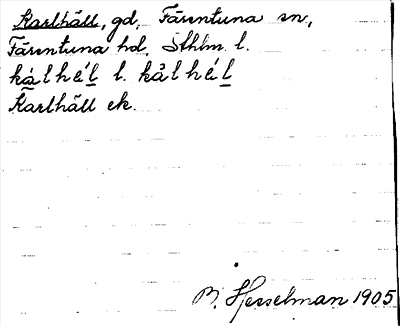 Karlhäll, gd, Färentuna sn,
Färentuna hd, Sthlm l.
kálhé̱l l. kålhé̱l
Karlhäll ek.
B. Hesselman 1905